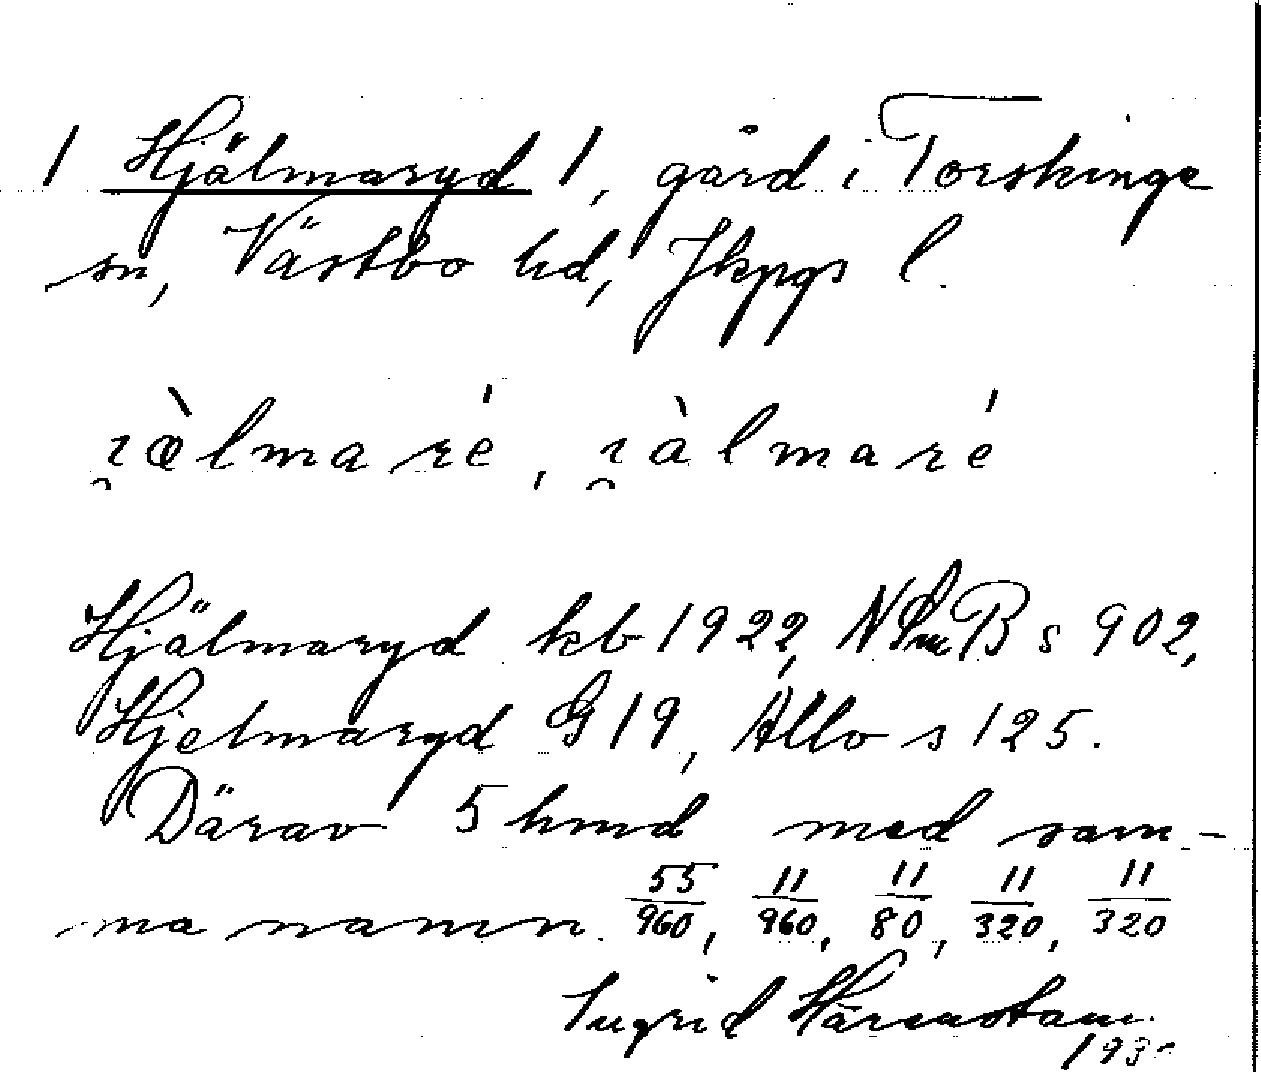 1 Hjälmaryd 1, gård i Torskinge
sn, Västbo hd, Jkpgs l.
i̯æ̀lmaré, i̯àlmaré
Hjälmaryd kb 1922, NSmB s 902,
Hjelmaryd G19, Allvo s 125.
Därav 5 hmd med sam-
ma namn. 55/960, 11/960, 11/80, 11/320, 11/320
Ingrid Härenstam